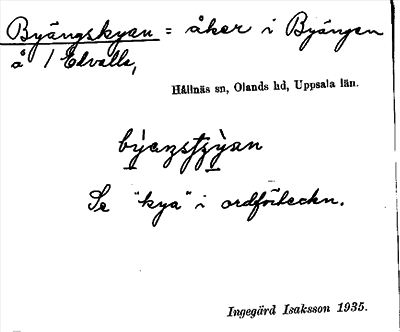 Byängskyan = åker i Byängen
å / Edvalla,
Hållnäs sn, Olands hd, Uppsala län.
Se "kya" i ordförteckn.
Ingegärd Isaksson 1935.